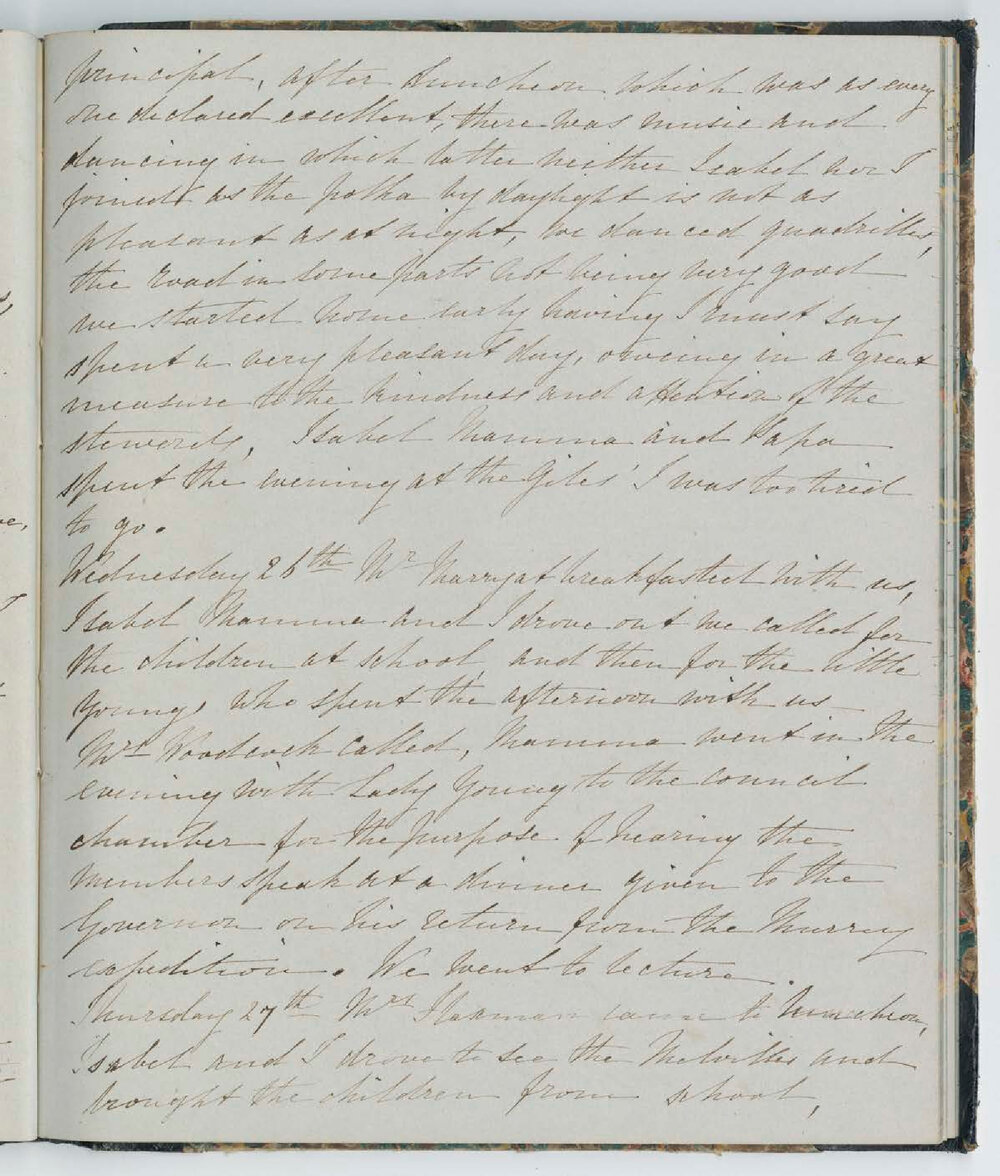 principal, after luncheon which was as every
one declared excellent, there was music and
dancing in which latter neither Isabel nor I
joined as the polka by daylight is not as
pleasant as at night, we danced quadrilles,
the road in some parts not being very good
we started home early having I must say
spent a very pleasant day, owing in a great
measure to the kindness and attention of the
stewards, Isabel Mamma and Papa
spent the evening at the Giles' I was too tired
to go.
Wednesday 26th Mr Marryat breakfasted with us,
Isabel Mamma and I drove out we called for
the children at school, and then for the little
Youngs who spent the afternoon with us
Mrs Woodcock called, Mamma went in the
evening with Lady Young to the council
chamber for the purpose of hearing the
members speak at a dinner given to the
Governor on his return from the Murray
expedition. We went to lecture
Thursday 27th Mrs came to luncheon,
Isabel and I drove to see the Melvilles and
brought the children from school,